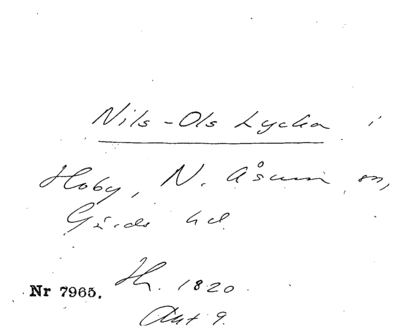 Nils-Ols Lycka i
Hoby, N. Åsum sn,
Gärds hd
Nr 7965. Hr. 1820.
Akt 9.